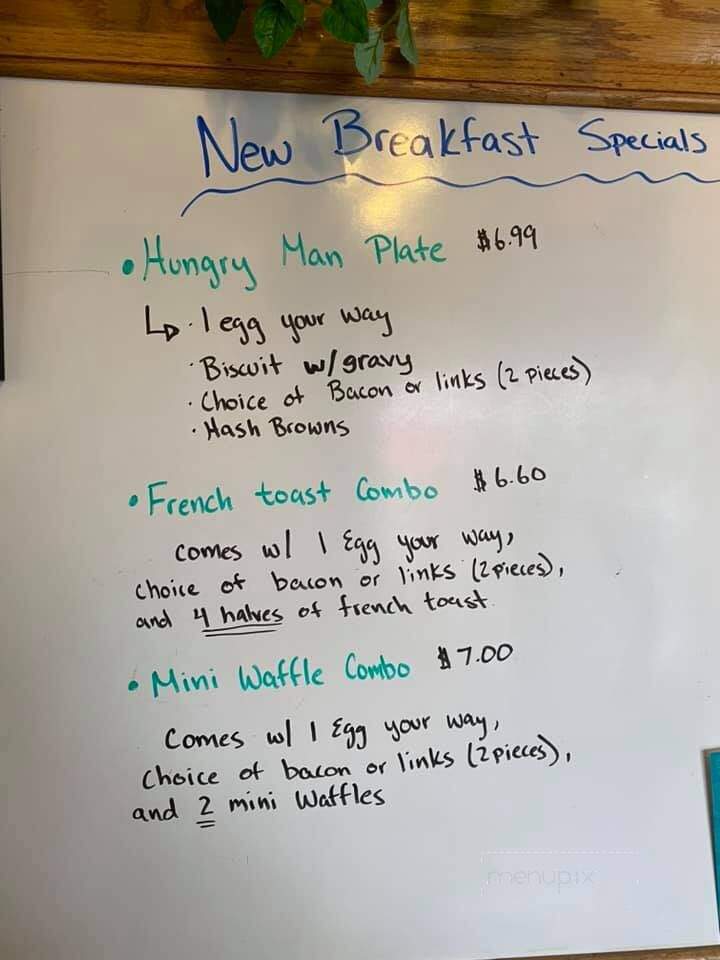 New Breakfast Specials
• Hungry Man Plate $6.99
↳ · 1 egg your way
· Biscuit w/gravy
· Choice of Bacon or links (2 pieces)
· Hash Browns
• French toast Combo $6.60
comes w/ 1 Egg your way,
choice of bacon or links (2pieces),
and 4 halves of french toast.
• Mini Waffle Combo $7.00
Comes w/ 1 Egg your way,
Choice of bacon or links (2pieces),
and 2 mini Waffles
menupix